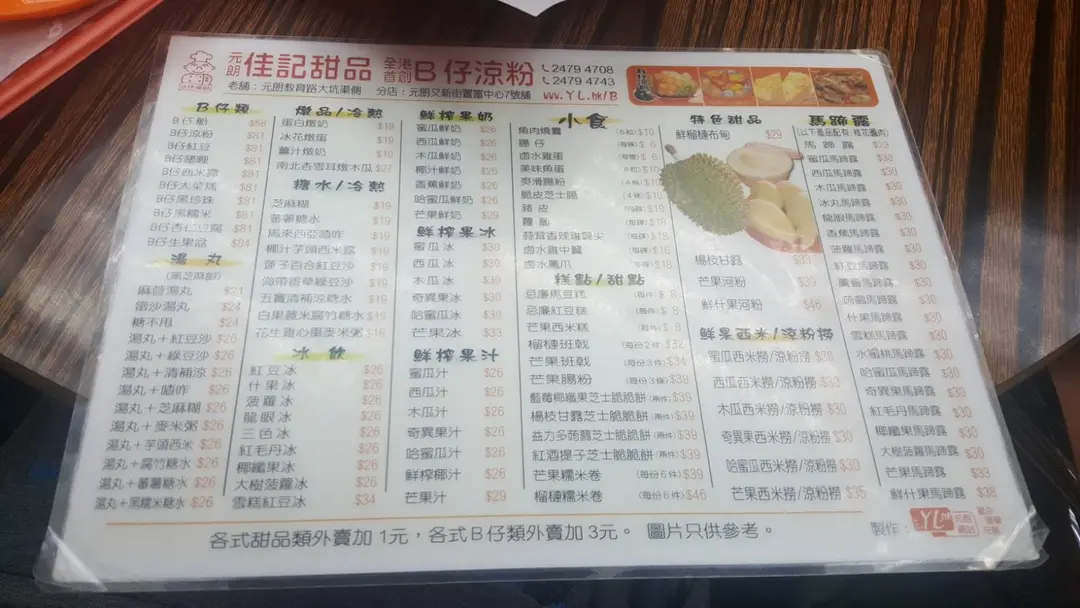 元朗 佳記甜品 全港首創 B仔涼粉 2479 4708
2479 4743
老舖：元朗教育路大坑渠側 分店：元朗又新街置富中心7號舖 www.YL.hk/B
B仔類
B仔船 $58
B仔涼粉 $81
B仔紅豆 $81
B仔啫喱 $81
B仔西米露 $81
B仔大菜糕 $81
B仔黑珍珠 $81
B仔黑糯米 $81
B仔杏仁豆腐 $81
B仔生果盆 $84
湯丸
(黑芝麻餡)
麻蓉湯丸 $21
雷沙湯丸 $24
糖不甩 $24
湯丸+紅豆沙 $26
湯丸+綠豆沙 $26
湯丸+清補涼 $26
湯丸+喳咋 $26
湯丸+芝麻糊 $26
湯丸+麥米粥 $26
湯丸+芋頭西米 $26
湯丸+腐竹糖水 $26
湯丸+蕃薯糖水 $26
湯丸+黑糯米糖水 $26
燉品/冷熱
蛋白燉奶 $19
冰花燉蛋 $19
薑汁燉奶 $19
南北杏雪耳燉木瓜 $27
糖水/冷熱
芝麻糊 $19
蕃薯糖水 $19
馬來西亞喳咋 $19
椰汁芋頭西米露 $19
蓮子百合紅豆沙 $19
海帶香草綠豆沙 $19
五寶清補涼糖水 $19
白果薏米腐竹糖水 $19
花生雞心棗麥米粥 $19
冰飲
紅豆冰 $26
什果冰 $26
菠蘿冰 $26
龍眼冰 $26
三色冰 $26
紅毛丹冰 $26
椰纖果冰 $26
大樹菠蘿冰 $26
雪糕紅豆冰 $34
鮮榨果奶
蜜瓜鮮奶 $26
西瓜鮮奶 $26
木瓜鮮奶 $26
椰汁鮮奶 $26
香蕉鮮奶 $26
哈蜜瓜鮮奶 $26
芒果鮮奶 $29
鮮榨果冰
蜜瓜冰 $30
西瓜冰 $30
木瓜冰 $30
奇異果冰 $30
哈蜜瓜冰 $30
芒果冰 $33
鮮榨果汁
蜜瓜汁 $26
西瓜汁 $26
木瓜汁 $26
奇異果汁 $26
哈蜜瓜汁 $26
鮮榨椰汁 $26
芒果汁 $29
小食
魚肉燒賣 (6粒) $10
腸仔 $6
鹵水雞蛋 $6
美味魚蛋 $10
爽滑腸粉 (4條) $10
脆皮芝士腸 (4條) $10
豬皮 $18
蘿蔔 $18
蒜茸香辣雞翼尖 $18
鹵水雞中翼 $18
鹵水鳳爪 $18
糕點/甜點
忌廉馬豆糕 (每件) $8
忌廉紅豆糕 (每件) $8
芒果西米糕 (每件) $8
榴槤班戟 (每份2件) $32
芒果班戟 (每份3件) $34
芒果腸粉 (每份3條) $39
藍莓椰纖果芝士脆脆餅 (兩件) $39
楊枝甘露芝士脆脆餅 (兩件) $39
益力多蒟蒻芝士脆脆餅 (兩件) $39
紅酒提子芝士脆脆餅 (兩件) $39
芒果糯米卷 (每份6件) $39
榴槤糯米卷 (每份6件) $46
特色甜品
鮮榴槤布甸 $29
楊枝甘露 $33
芒果河粉 $39
鮮什果河粉 $46
鮮果西米/涼粉撈
蜜瓜西米撈/涼粉撈 $30
西瓜西米撈/涼粉撈 $30
木瓜西米撈/涼粉撈 $30
奇異果西米撈/涼粉撈 $30
哈蜜瓜西米撈/涼粉撈 $30
芒果西米撈/涼粉撈 $35
馬蹄露
(以下產品配有：桂花圓肉)
馬蹄露 $23
蜜瓜馬蹄露 $30
西瓜馬蹄露 $30
木瓜馬蹄露 $30
冰丸馬蹄露 $30
龍眼馬蹄露 $30
香蕉馬蹄露 $30
菠蘿馬蹄露 $30
紅豆馬蹄露 $30
蘆薈馬蹄露 $30
馬蹄露 $30
什果馬蹄露 $30
雪糕馬蹄露 $30
水蜜桃馬蹄露 $30
哈蜜瓜馬蹄露 $30
奇異果馬蹄露 $30
紅毛丹馬蹄露 $30
椰纖果馬蹄露 $30
大樹菠蘿馬蹄露 $30
芒果馬蹄露 $33
鮮什果馬蹄露 $38
各式甜品類外賣加 1元，各式B仔類外賣加 3元。 圖片只供參考。
製作： YL